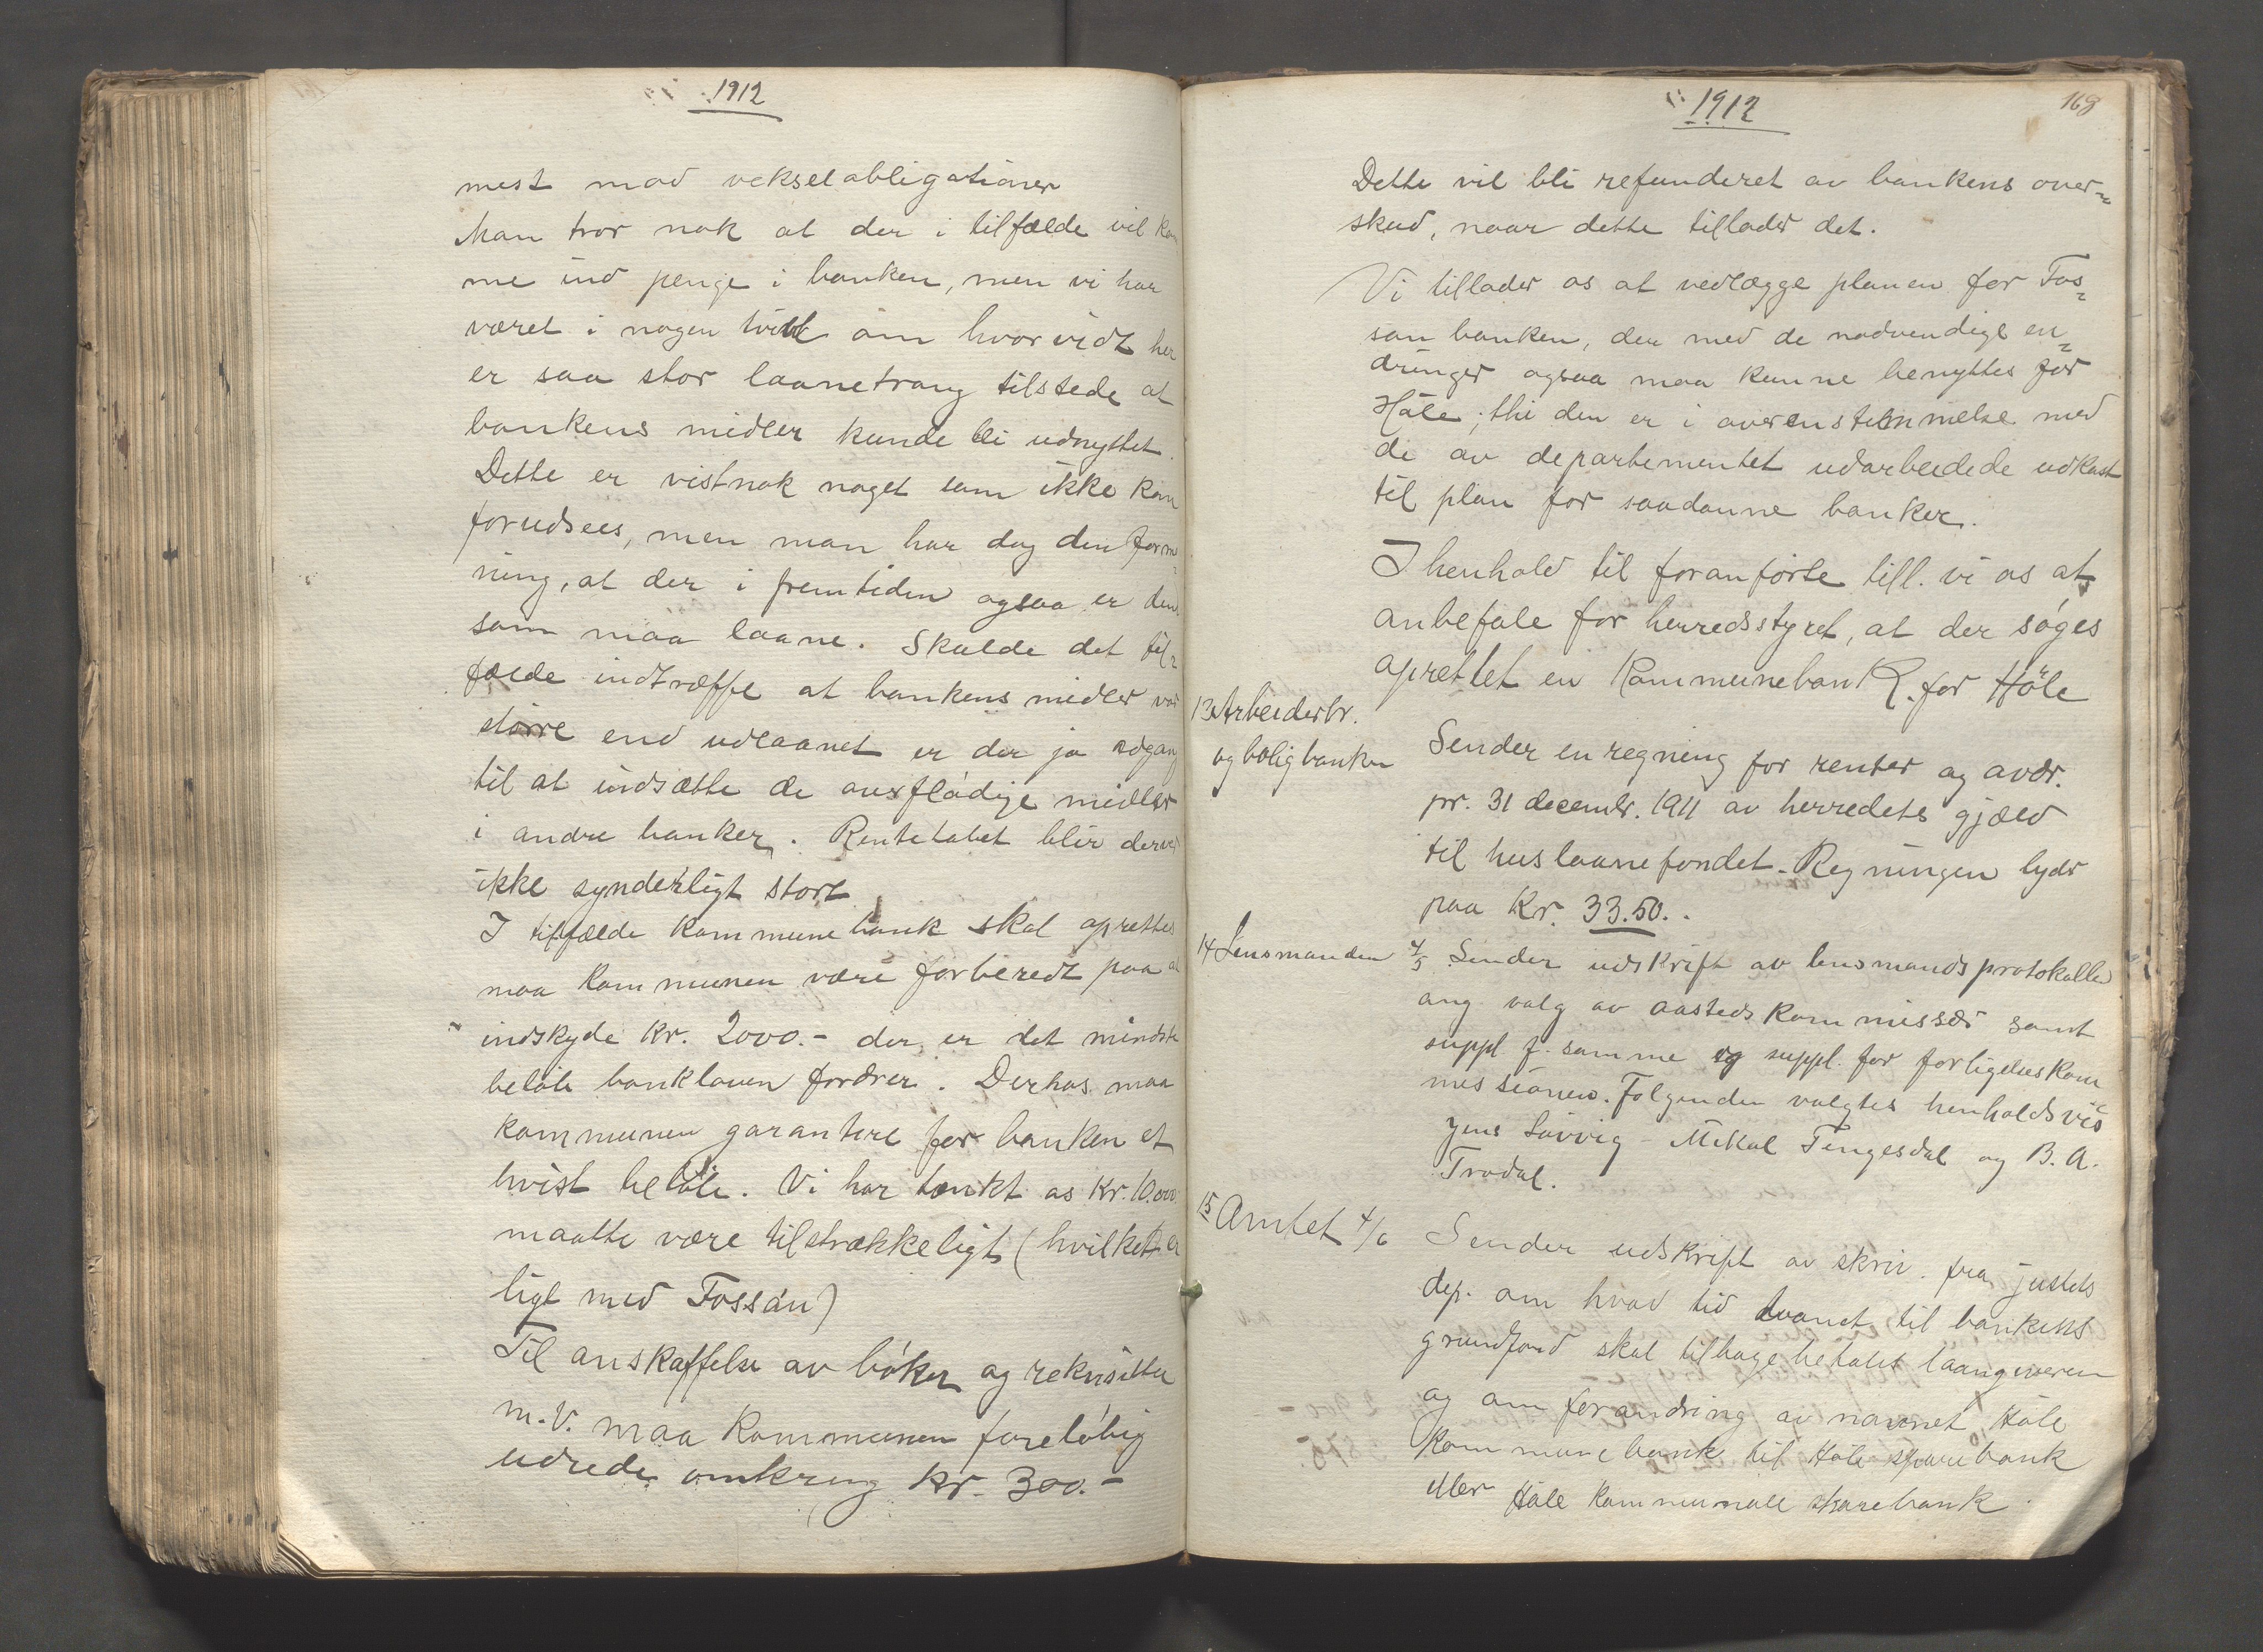 1912
mest mod vekselobligationer
Man tror nok at der i tilfælde vil kom
me ind penge i banken, men vi har
været i nogen tvil om hvorvidt her
er saa stor laanetrang tilstede at
bankens midler kunde bli udnyttet.
Dette er vistnok noget som ikke kan
forudsees, men man har dog den form
ning, at der i fremtiden ogsaa er dem
som maa laane. Skulde det til=
fælde indtræffe at bankens midler var
större end udlaanet er der jo adgang
til at indsætte de overflødige midler
i andre banker. Rentetabet blir derved
ikke synderligt stort
I tilfælde kommunebank skal oprettes
maa kommunen være forberedt paa at
indskyde Kr. 2000.- der er det mindste
beløb bankloven fordrer. Derhos maa
kommunen garantere for banken et
hvist beløb. Vi har tænkt os Kr. 10.000
maatte være tilstrækkeligt (hvilket er
ligt med Fossan)
Til anskaffelse av bøker og rekvisitter
m.v. maa kommunen foreløbig
udrede omkring kr. 300.-
1912
168
Dette vil bli refunderet av bankens over=
skud, naar dette tillader det.
Vi tillader os at vedlægge planen for Fos=
san banken, der med de nødvendige en=
dringer ogsaa maa kunne benyttes for
Høle; thi den er i overenstemmelse med
de av departementet udarbeidede udkast
til plan for saadanne banker.
I henhold til foranførte till. vi os at
anbefale for herredsstyret, at der søges
oprettet en Kommunebank for Høle
13 Arbeiderbr.
og boligbanken
Sender en regning for renter og avdr.
pr. 31 decembr. 1911 av herredets gjæld
til huslaanefondet. Regningen lyder
paa Kr. 33.50.
14 Lensmanden 4/5 Sender udskrift av lensmandsprotokollen
ang. valg av aastedskommissær samt
suppl. f. samme og suppl. for forligelseskom
missionen. Følgende valgtes henholdsvis
Jens Løvvig - Mikal Tengesdal og B. A.
Trodal.
15 Amtet 4/6 Sender udskrift av skriv. fra justits
dep. om hvad tid laanet til bankens
grundfond skal tilbagebetales laangiveren
og om forandring av navnet Høle
Kommunebank til Høle sparebank
eller Høle kommunale sparebank